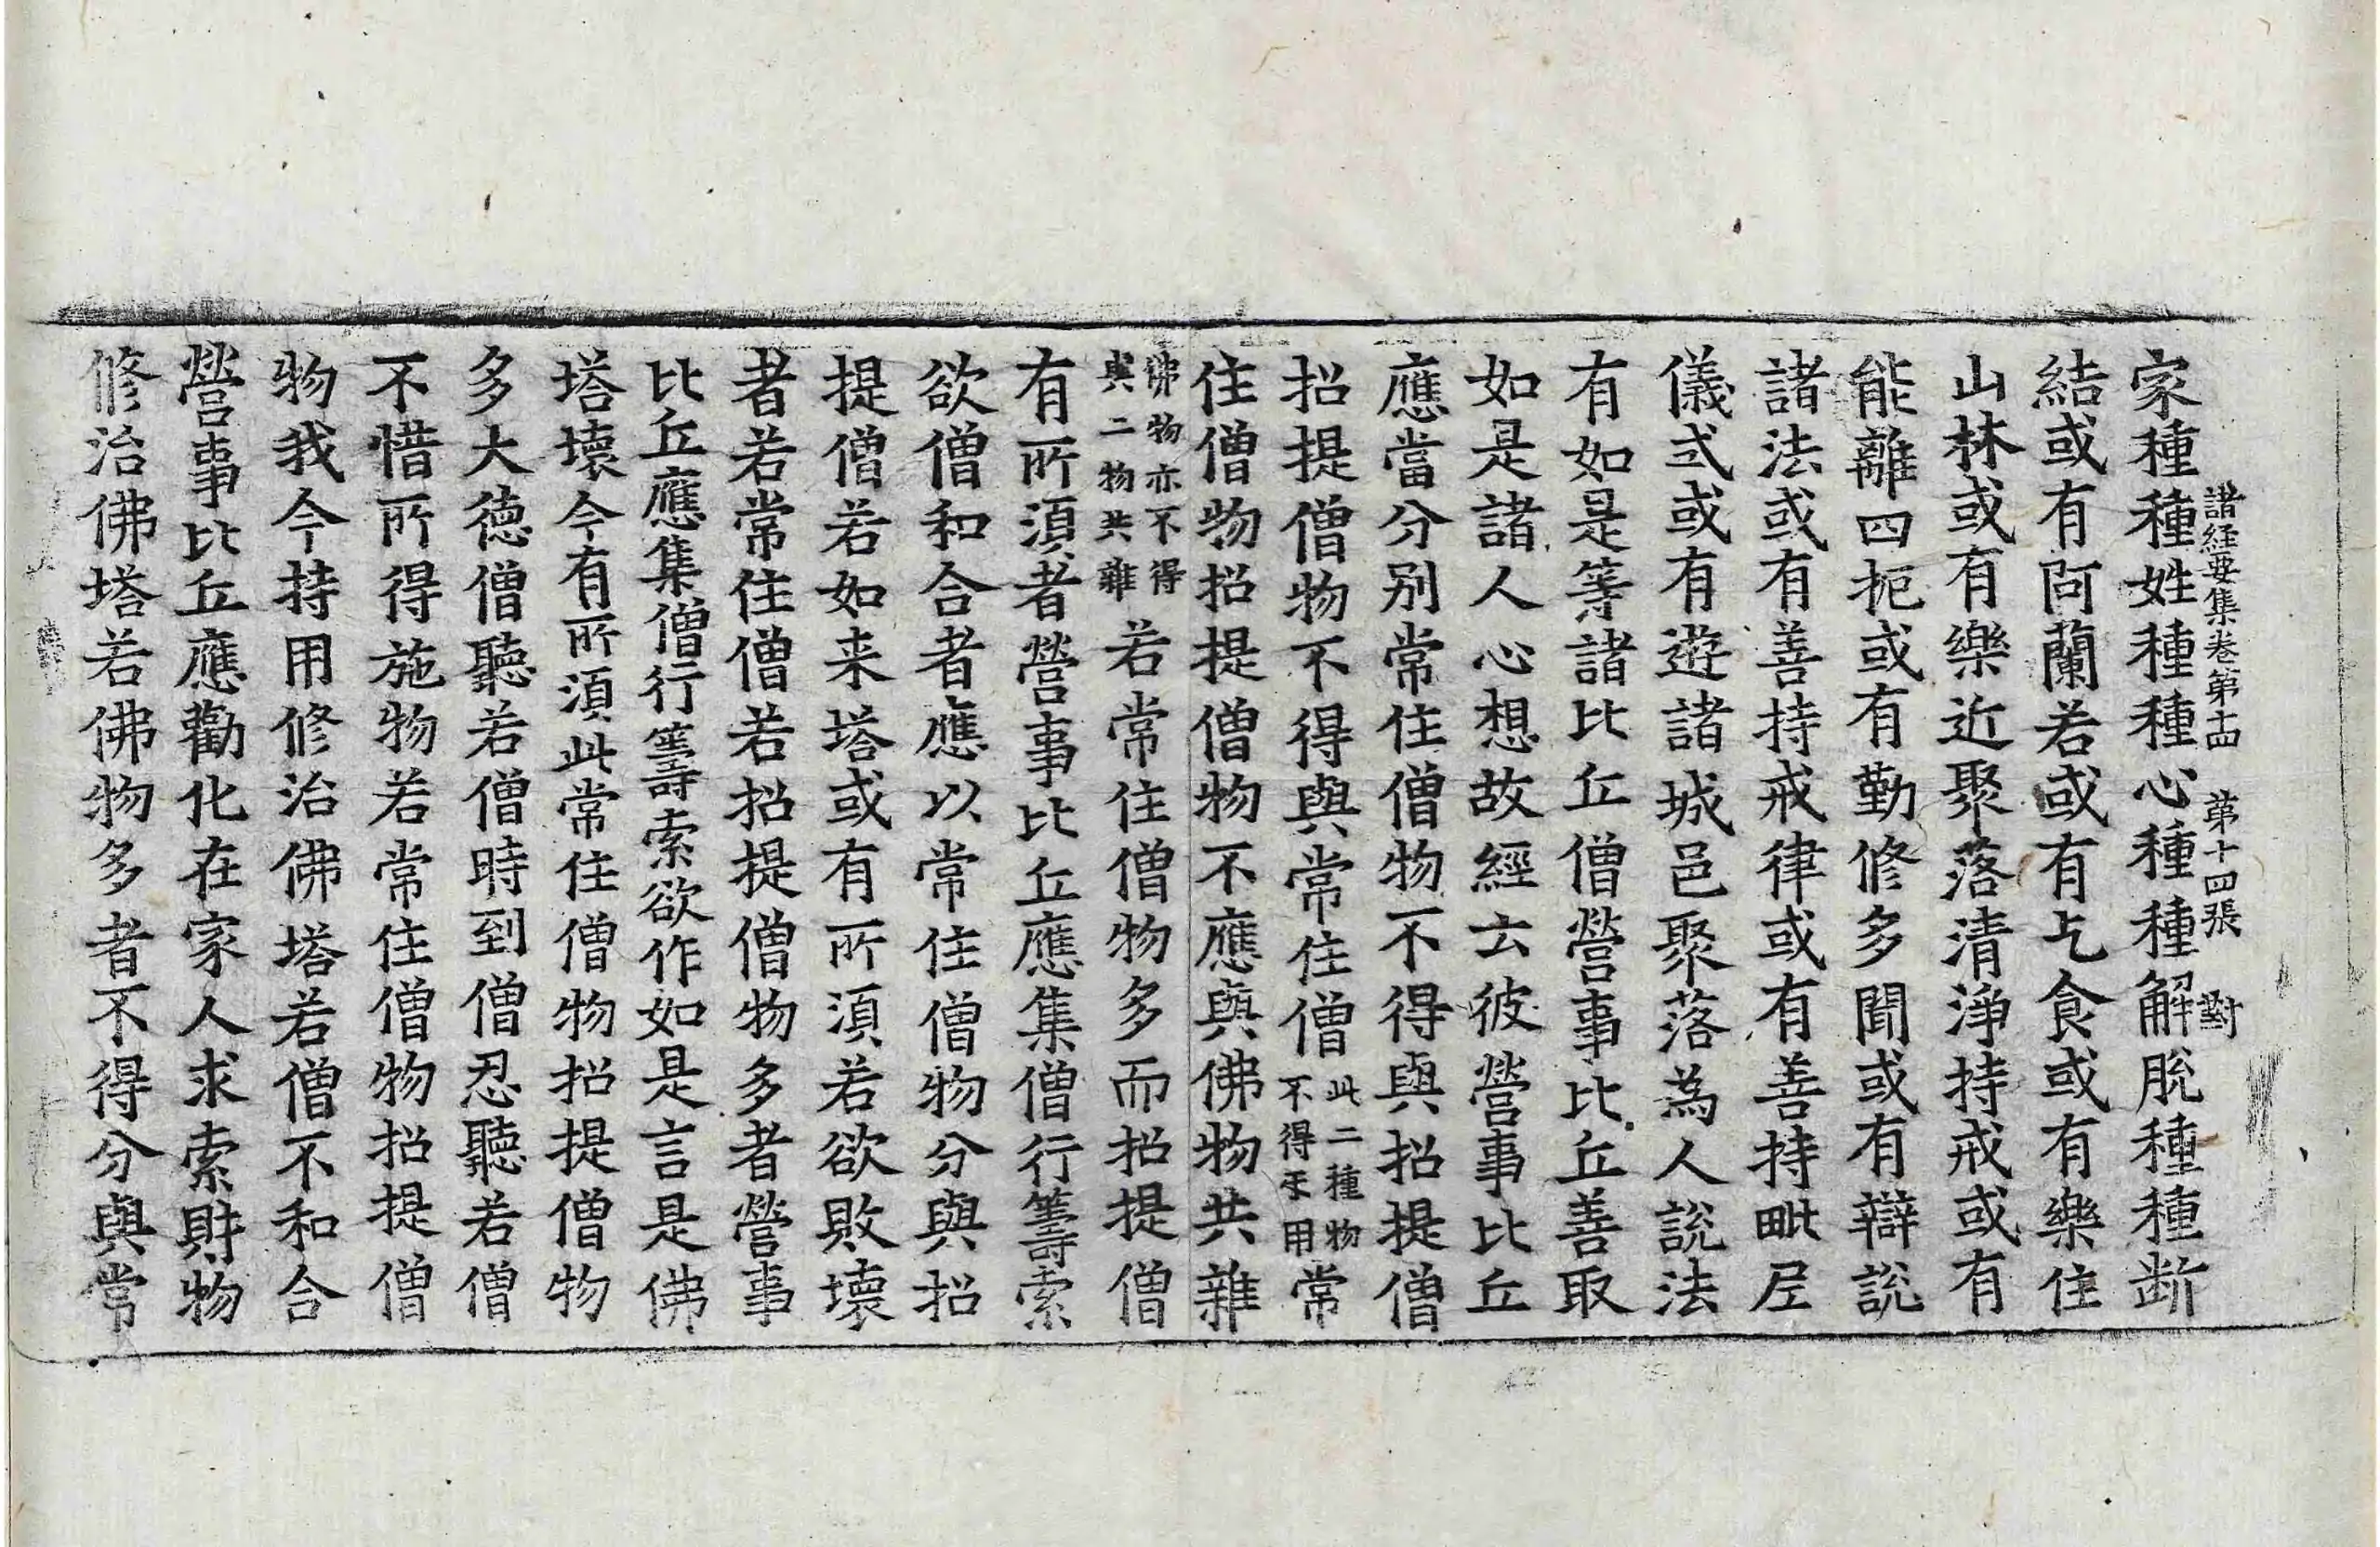 諸經要集卷第十四　第十四張　對
家種種姓種種心種種解脫種種断
結或有阿蘭若或有乞食或有樂住
山林或有樂近聚落清淨持戒或有
能離四扼或有勤修多聞或有辯說
諸法或有善持戒律或有善持毗尼
儀式或有遊諸城邑聚落為人說法
有如是等諸比丘僧營事比丘善取
如是諸人心想故經云彼營事比丘
應當分別常住僧物不得與招提僧
招提僧物不得與常住僧
此二種物
不得互用
常
住僧物招提僧物不應與佛物共雜
佛物亦不得
與二物共雜
若常住僧物多而招提僧
有所須者營事比丘應集僧行籌索
欲僧和合者應以常住僧物分與招
提僧若如来塔或有所須若欲敗壞
者若常住僧若招提僧物多者營事
比丘應集僧行籌索欲作如是言是佛
塔壞今有所須此常住僧物招提僧物
多大德僧聽若僧時到僧忍聽若僧
不惜所得施物若常住僧物招提僧
物我今持用修治佛塔若僧不和合
營事比丘應勸化在家人求索財物
修治佛塔若佛物多者不得分與常